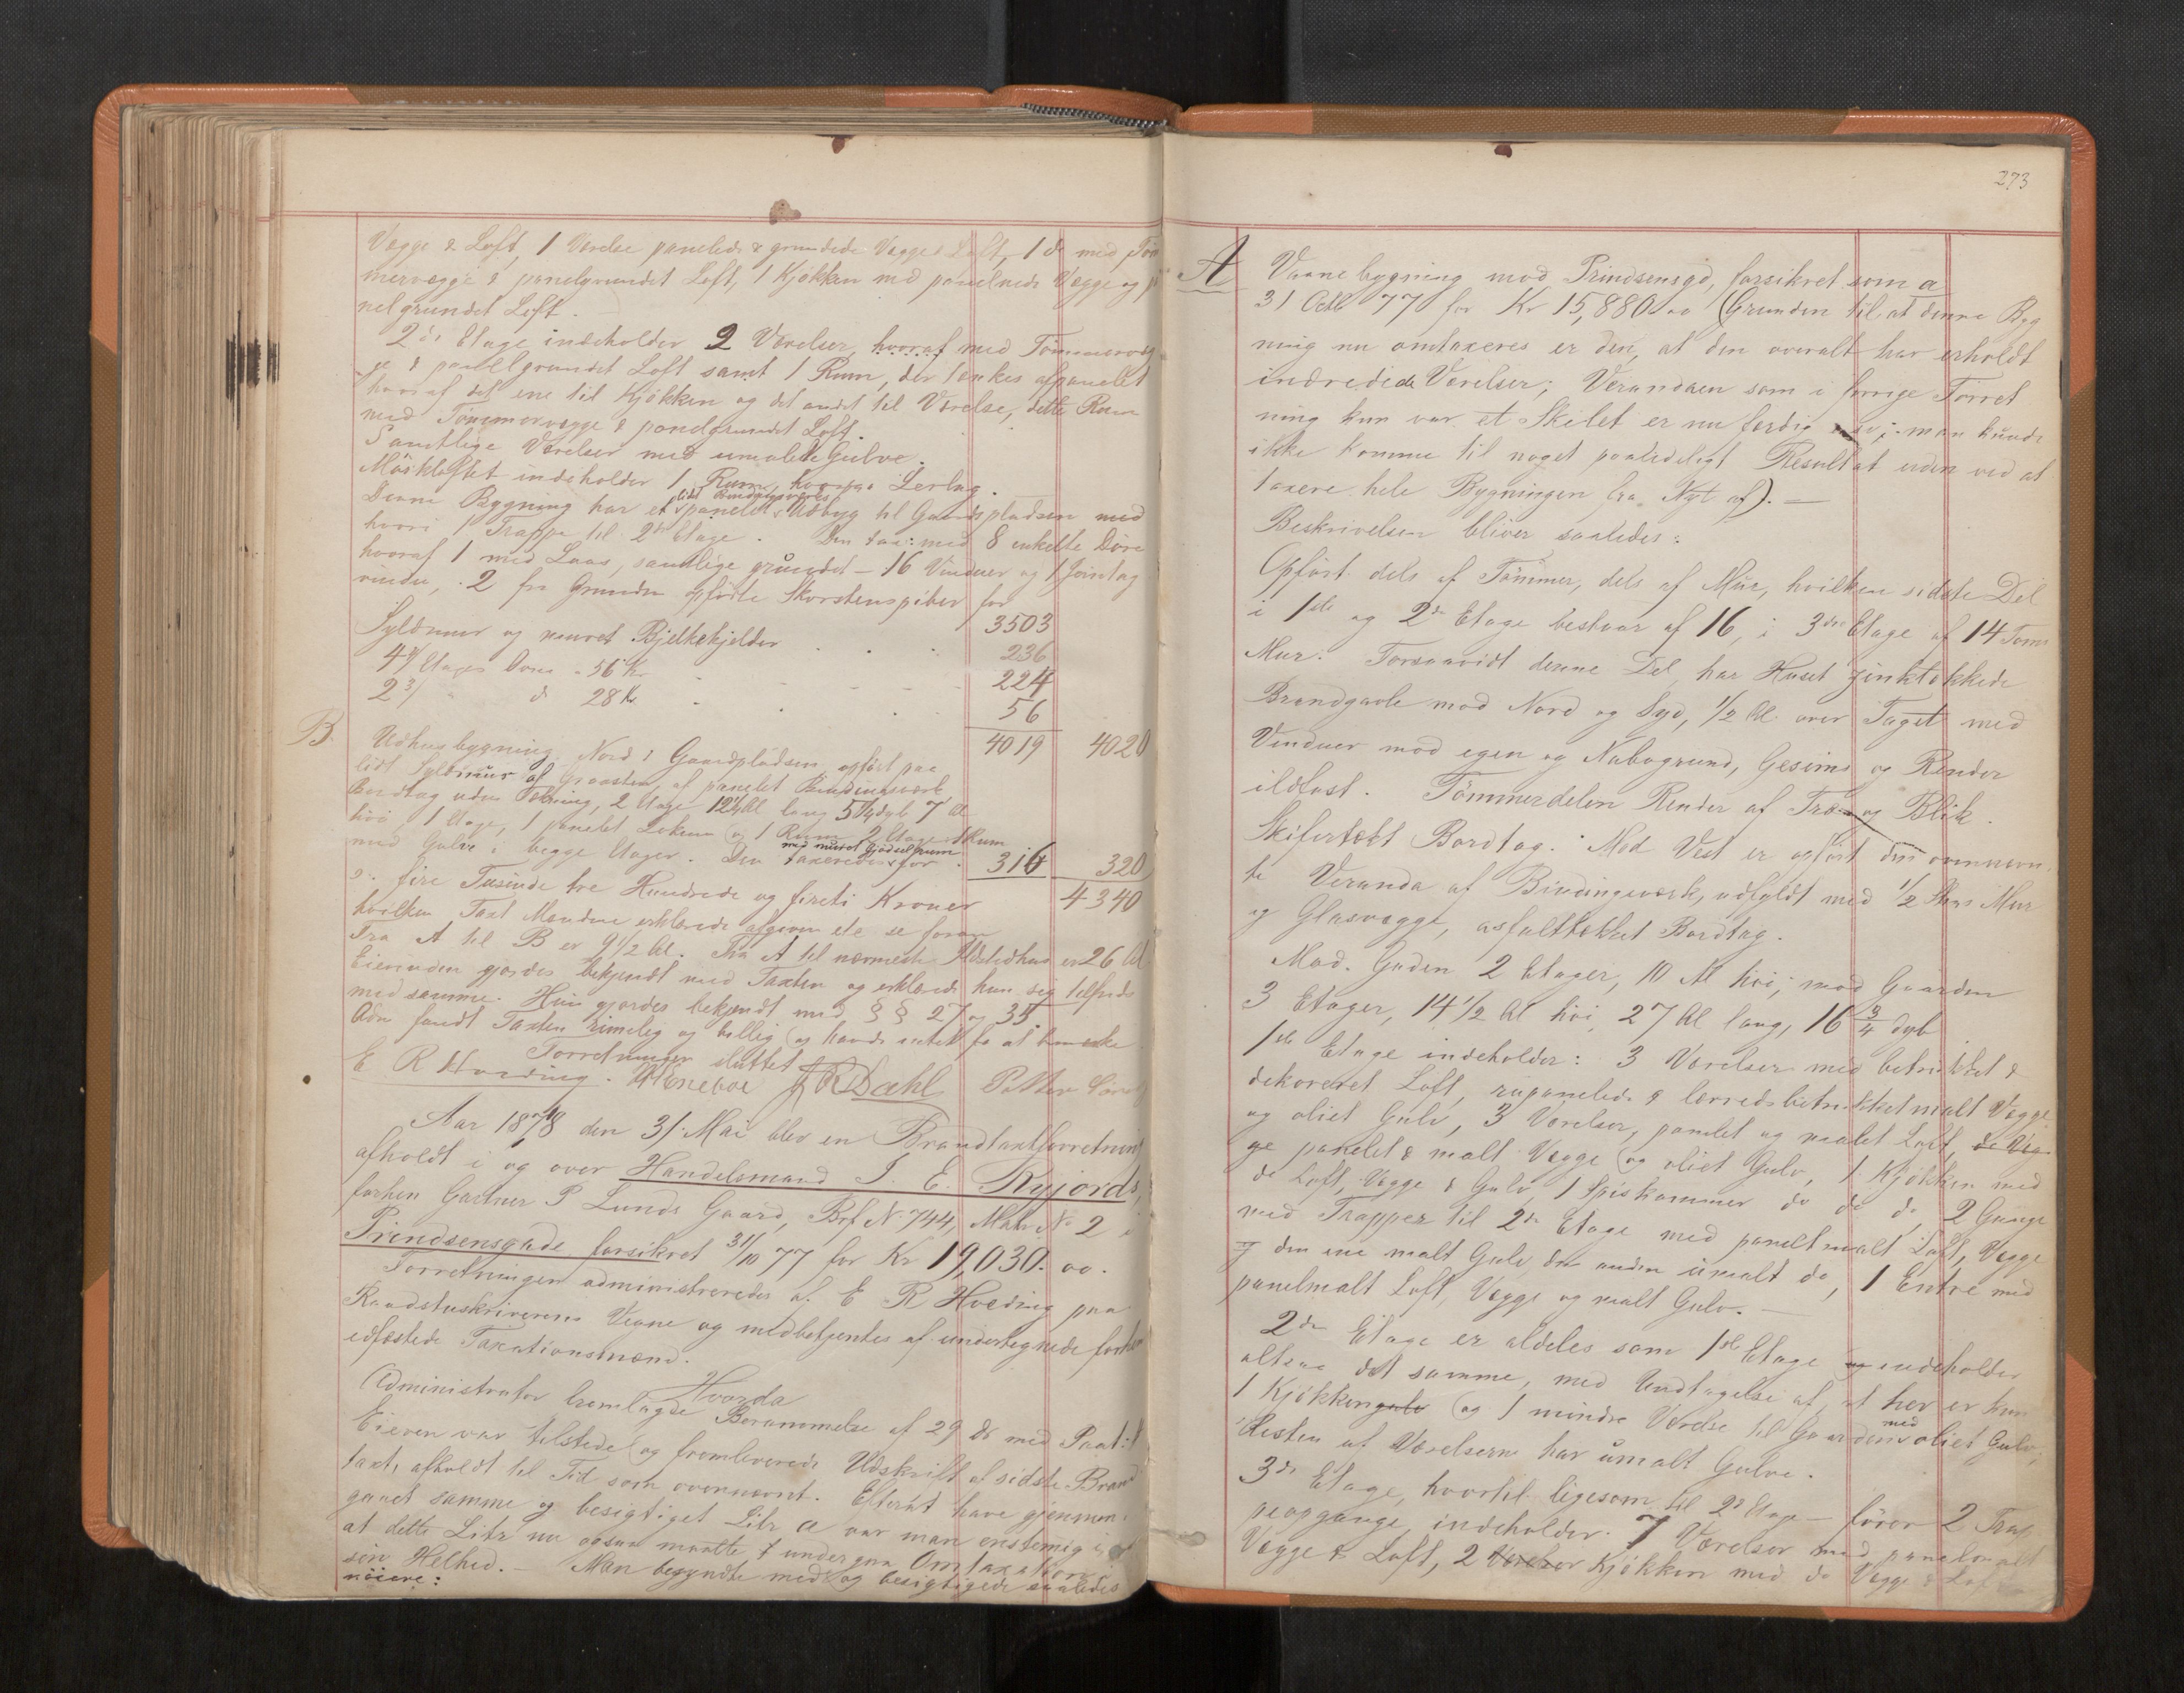 Vægge & Loft, 1 Værelse panelede & grundede Vægge & Loft, 1 do med Töm
mervægge & panelgrundet Loft, 1 Kjökken med panelede Vægge og pa
nelgrundet Loft.
2de Etage indeholder 2 Værelser, hvoraf med Tömmervæg
ge & panelgrundet Loft samt 1 Rum, der tænkes afpanelet
hvoraf det ene til Kjökken og det andet til Værelse, dette Rum
med Tömmervægge & panelgrundet Loft.
Samtlige Værelser med umalede Gulve.
Mörkloftet indeholder 1 Rum, hvorpaa Lerlag.
Denne Bygning har et lidet Bindingsværks panelet Udbyg til Gaardspladsen med
hvori 1 Trappe til 2den Etage. Den tax: med 8 enkelte Döre
hvoraf 1 med Laas, samtlige grundet - 16 Vinduer og 1 Jerntag
vindu, 2 fra Grunden opförte Skorstenspiber for 3503
Syldmur og muret Bjelkekjelder 236
4 Etages Ovne - 56 Kr 224
2 3/ " do 28 Kr. 56
4019 4020
B. Udhusbygning Nord i Gaardspladsen, opfört paa
lidt Syldmur af Graasten, af panelet Bindingsværk
Bordtag uden Tækning, 2 Etage 12¼ Al lang 5¼ dyb 7 Al
höi, 1 Etage, 1 panelet Lokum og 1 Rum 2 Etage 1 Rum
med Gulve i begge Etager. Den taxeredes med muret Gjödselrum for 316 320
er fire Tusinde tre Hundrede og fireti Kroner 4340
hvilken Taxt Mændene erklærede afgiven etc se foran
Fra A til B er 9½ Al. Fra A til nærmeste Ildstedhus er 26 Al.
Eierinden gjordes bekjendt med Taxten og erklærede hun sig tilfreds
med samme. Hun gjordes bekjendt med § § 27 og 35.
Adm fandt Taxten rimelig og billig og havde intet for at bemærke
Forretningen sluttet
E R Hvoding. JR Dæhl Petter
Aar 1878 den 31 Mai blev en Brandtaxtforretning
afholdt i og over Handelsmand J. E. Ryjords,
forhen Gartner P Lunds Gaard, Brf No 744, Matr No 2 i
Prindsensgade forsikret 31/10 77 for Kr 19,030. oo.
Forretningen administreredes af E R Hvoding paa
Raadstuskriverens Vegne og medbetjentes af undertegnede forhen
edfæstede Taxationsmænd.
Hvorda
Administrator fremlagde Berammelse af 29 ds med Paat:
Eieren var tilstede og fremleverede Udskrift af sidste Brand
taxt, afholdt til Tid som ovennævnt. Efterat have gjennem
gaaet samme og besigtiget Litr a var man enstemig i
at dette Litr nu ogsaa maatte undergaa Omtaxation i
sin Helhed. - Man begyndte med og besigtigede saaledes
nöiere:
273
A Vaanebygning mod Prindsensgd, forsikret som a
31 Octb 77 for Kr 15,880 oo (Grunden til at denne Byg
ning nu omtaxeres er den, at den overalt har erholdt
indredede Værelser; Verandaen som i forrige Forret
ning kun var et Skelet er nu færdig; man kunde
ikke komme til noget paalideligt Resultat uden ved at
taxere hele Bygningen fra Nyt af). —
Beskrivelsen bliver saaledes:
Opfört dels af Tömmer, dels af Mur, hvilken sidste Del
i 1ste og 2de Etage bestaar af 16, i 3die Etage af 14 Toms
Mur. Forsaavidt denne Del, har Huset zinktækkede
Brandgavle mod Nord og Syd, 1/2 Al. over Taget med
Vinduer mod egen og Nabogrund, Gesims og Render
ildfast. Tömmerdelen Render af Træ og Blik.
Skifertækt Bordtag. Mod Vest er opfört den ovennævn
te Veranda af Bindingsværk, udfyldt med 1/2 Stens Mur
og Glasvægge, asfalttækket Bordtag.
Mod Gaden 2 Etager, 10 Al höi, mod Gaarden
3 Etager, 14 1/2 Al höi, 27 Al lang, 16 3/4 dyb
1ste Etage indeholder: 3 Værelser med betrukket &
dekoreret Loft, rupanelede & lærredsbetrukket malt Vægge
og oliet Gulv, 3 Værelser, panelet og malet Loft, do Væg
ge panelet & malt Vægge og oliet Gulv, 1 Kjökken med
do Loft, Vægge & Gulv, 1 Spiskammer do do do, 2 Gange
med Trapper til 2de Etage med paneltmalt Loft, Vægge
og den ene malt Gulv, den anden umalt do, 1 Entre med
panelmalt Loft, Vægge og malt Gulv. —
2den Etage er aldeles som 1ste Etage og indeholder
altsaa det samme, med Undtagelse af, at her er kun
1 Kjökken gulv og 1 mindre Værelse til Gaarden med oliet Gulv,
Resten af Værelserne har umalt Gulve.
3de Etage, hvortil ligesom til 2de Etage förer 2 Trap
peopgange indeholder: 7 Værelser med panelmalt
Vægge & Loft, 2 Værelser Kjökken med do Vægge & Loft